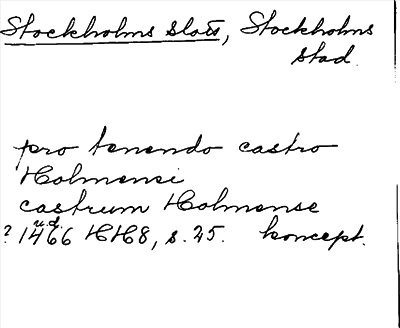 Stockholms slott, Stockholms
stad.
pro tenendo castro
Holmensi
castrum Holmense
u.d.
? 1466 HH8, s. 25. koncept.